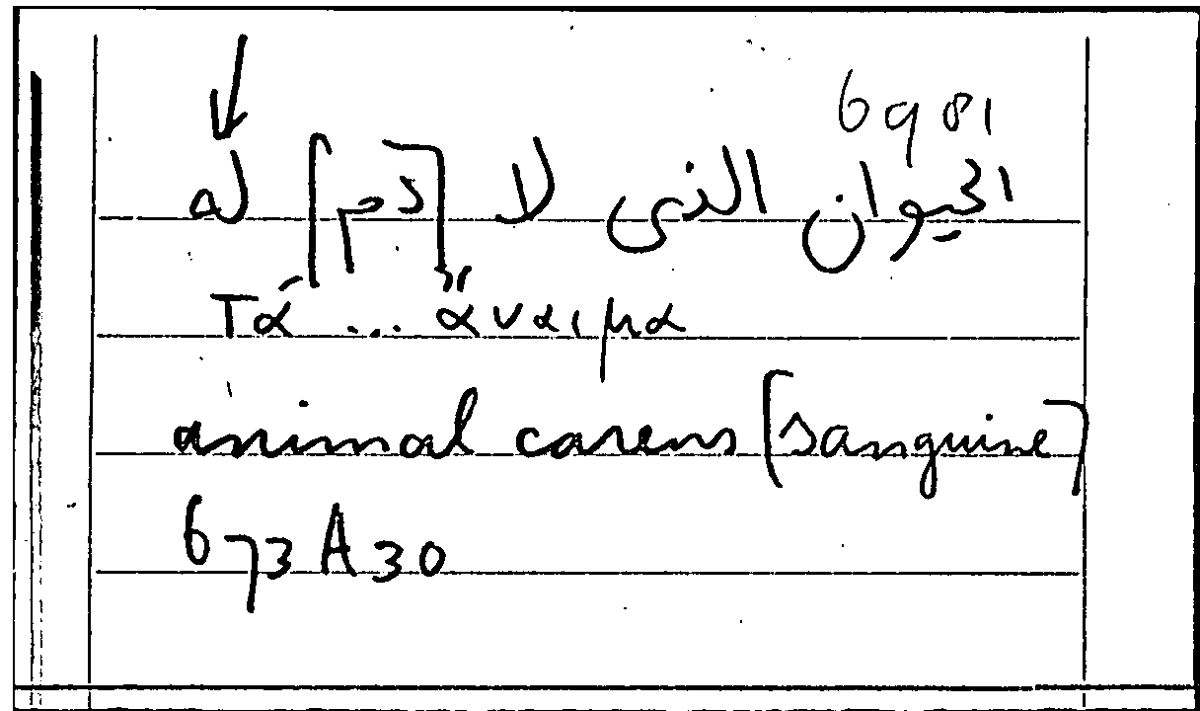 6981
الحيوان الذى لا [دم] له
Τὰ ... ἄναιμα
animal carens [sanguine]
673A30